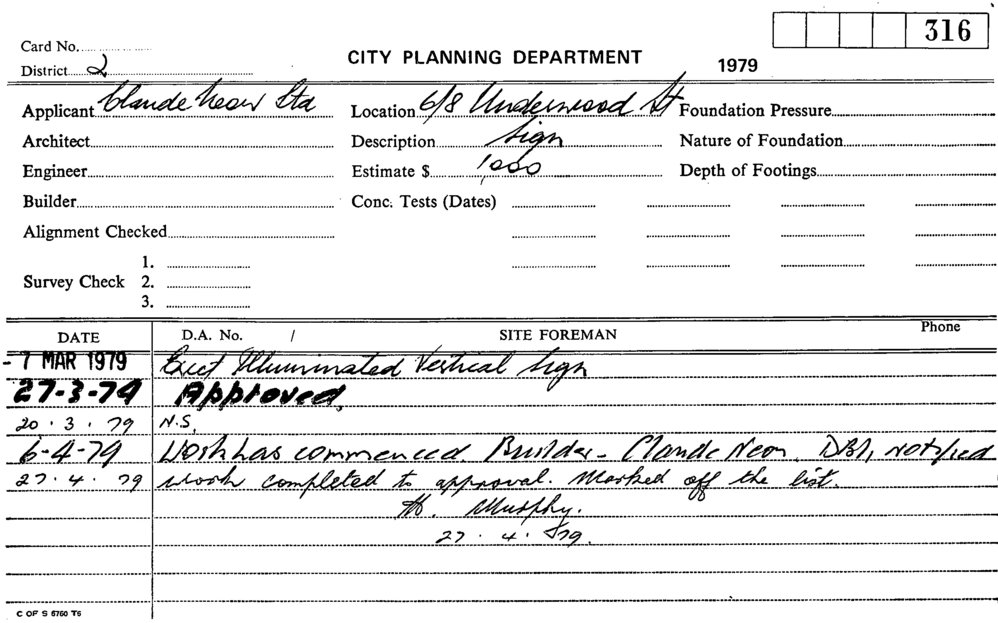 316
Card No.
CITY PLANNING DEPARTMENT 1979
District 2
Applicant Claude Neon Ltd Location 6/8 Underwood St Foundation Pressure
Architect Description Sign Nature of Foundation
Engineer Estimate $ 1,000 Depth of Footings
Builder Conc. Tests (Dates)
Alignment Checked
1.
Survey Check 2.
3.
DATE D.A. No. / SITE FOREMAN Phone
- 7 MAR 1979 Erect Illuminated Vertical Sign
27-3-79 Approved.
20.3.79 N.S.
6-4-79 Work has commenced. Builder - Claude Neon, DBI, notified
27.4.79 work completed to approval. Marked off the list.
Murphy.
27.4.79.
C OF S 6760 T6